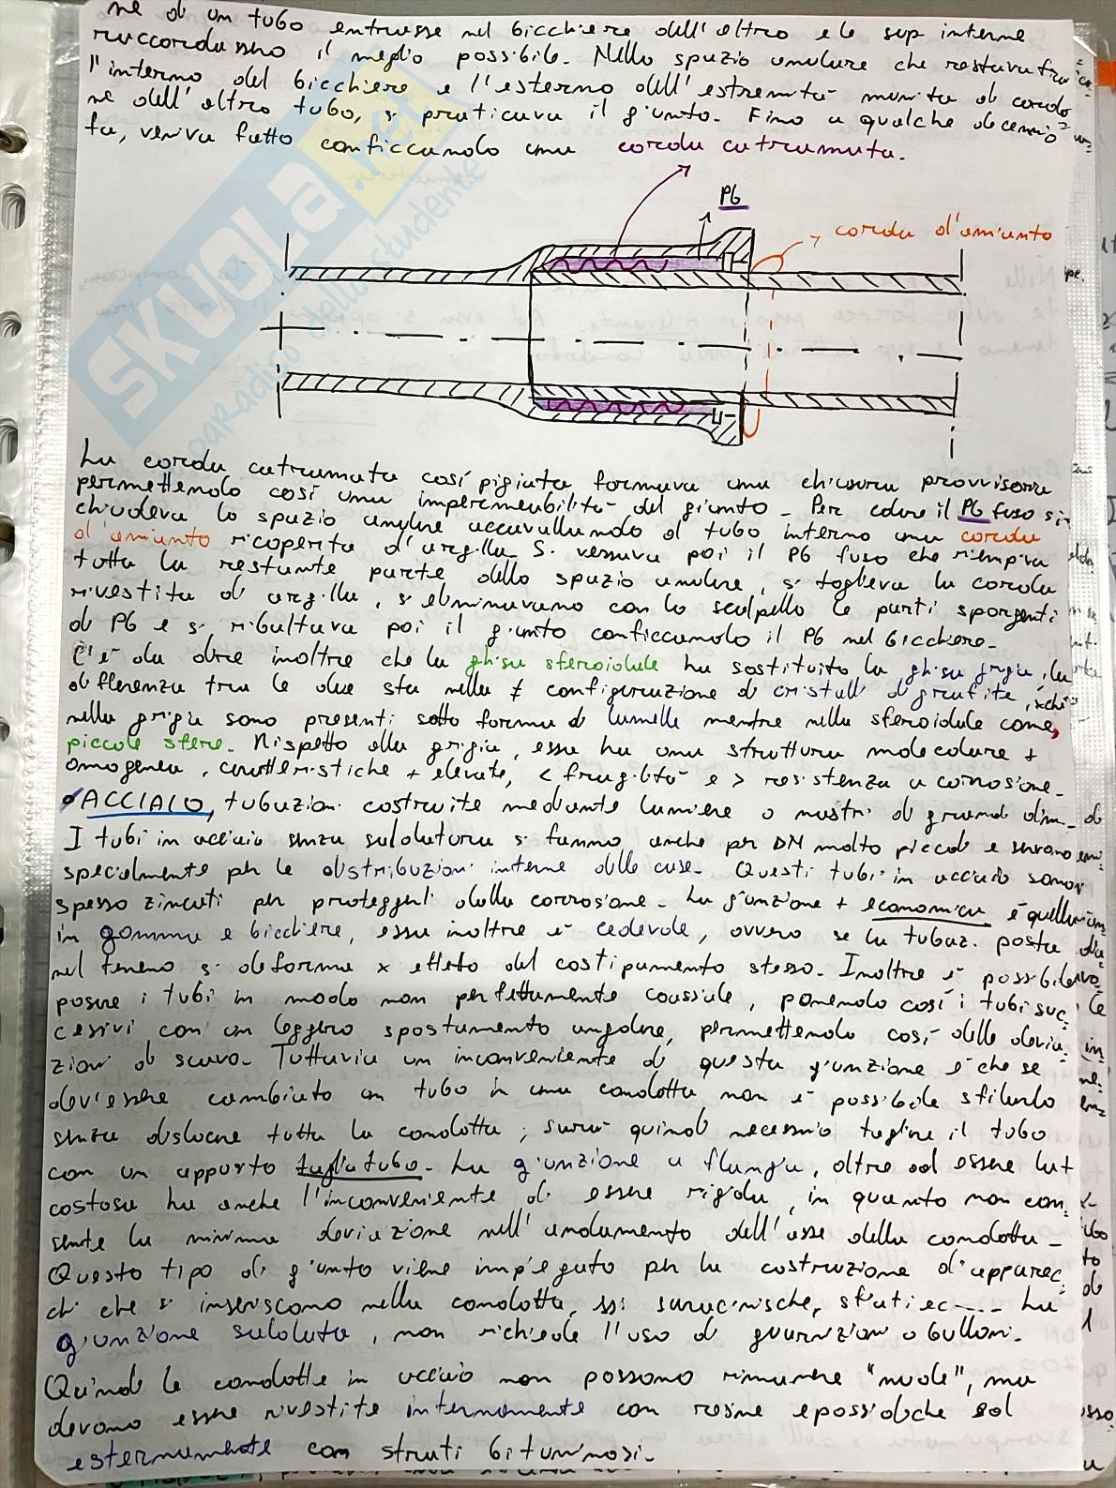 ne di un tubo entrasse nel bicchiere dell'altro e le sup interne
raccordassero il meglio possibile. Nello spazio anulare che restava fra
l'interno del bicchiere e l'esterno dell'estremità munita di cordo
ne dell'altro tubo, si praticava il giunto. Fino a qualche decennio
fa, veniva fatto conficcando una corda catramata.
Pb
corda d'amianto
SKUOLA.net
paradiso dello studente
La corda catramata così pigiata formava una chiusura provvisoria
permettendo così una impermeabilità del giunto. Per colare il Pb fuso si
chiudeva lo spazio anulare accavallando al tubo interno una corda
d'amianto ricoperta d'argilla. Si versava poi il Pb fuso che riempiva
tutta la restante parte dello spazio anulare, si toglieva la corda
rivestita di argilla, si eliminavano con lo scalpello le parti sporgenti
di Pb e si ribatteva poi il giunto conficcando il Pb nel bicchiere.
C'è da dire inoltre che la ghisa sferoidale ha sostituito la ghisa grigia, la
differenza tra le due sta nella ≠ configurazione di cristalli di grafite,
nella grigia sono presenti sotto forma di lamelle mentre nella sferoidale come
piccole sfere. Rispetto alla grigia, essa ha una struttura molecolare +
omogenea, caratteristiche + elevate, < fragilità e > resistenza a corrosione.
• ACCIAIO, tubazioni costruite mediante lamiere o nastri di grandi dim.
I tubi in acciaio senza saldatura si fanno anche per DN molto piccoli e servono
specialmente per le distribuzioni interne delle case. Questi tubi in acciaio sono
spesso zincati per proteggerli dalla corrosione. La giunzione + economica è quella
in gomma e bicchiere, essa inoltre è cedevole, ovvero se la tubaz. posta
nel terreno si deforma x effetto del costipamento stesso. Inoltre è possibile
posare i tubi in modo non perfettamente coassiale, ponendo così i tubi suc
cessivi con un leggero spostamento angolare, permettendo così delle devia-
zioni di scavo. Tuttavia un inconveniente di questa giunzione è che se
dev'essere cambiato un tubo in una condotta non è possibile sfilarlo
senza dislocare tutta la condotta; sarà quindi necessario tagliare il tubo
con un apposto tagliatubo. La giunzione a flangia, oltre ad essere
costosa ha anche l'inconveniente di essere rigida, in quanto non con
sente la minima deviazione nell'andamento dell'asse della condotta.
Questo tipo di giunto viene impiegato per la costruzione d'apparec
chi che si inseriscono nella condotta, saracinesche, sfiati ec.... La
giunzione saldata, non richiede l'uso di guarnizioni o bulloni.
Quindi le condotte in acciaio non possono rimanere "nude", ma
devono essere rivestite internamente con resine epossidiche ed
esternamente con strati bituminosi.